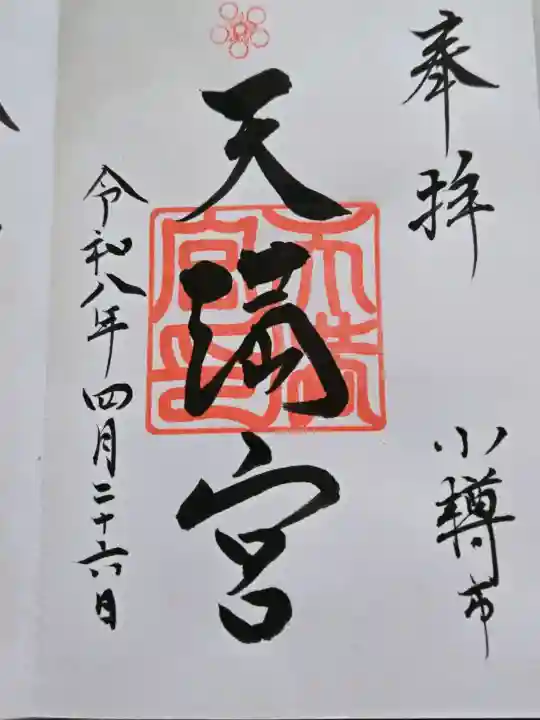 奉拝
小樽市
天満宮
天満宮印
令和八年四月二十六日